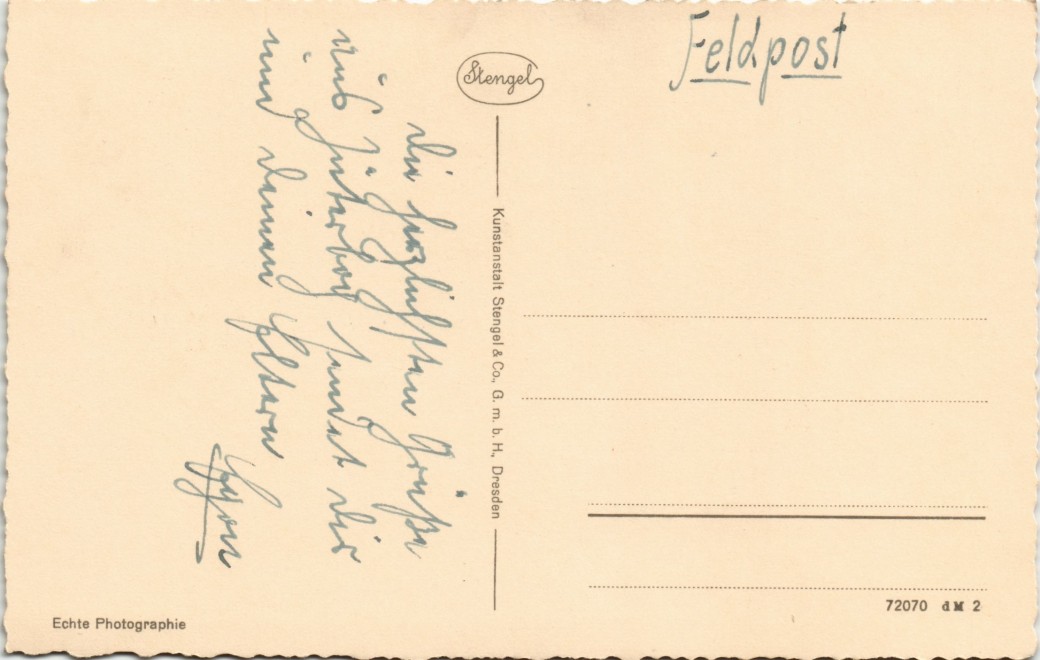 Feldpost
Stengel
Die herzlichsten Grüße
aus Jüterbog sendet Dir
und Deinen Eltern
Egon
Kunstanstalt Stengel & Co., G. m. b. H., Dresden
72070 d M 2
Echte Photographie